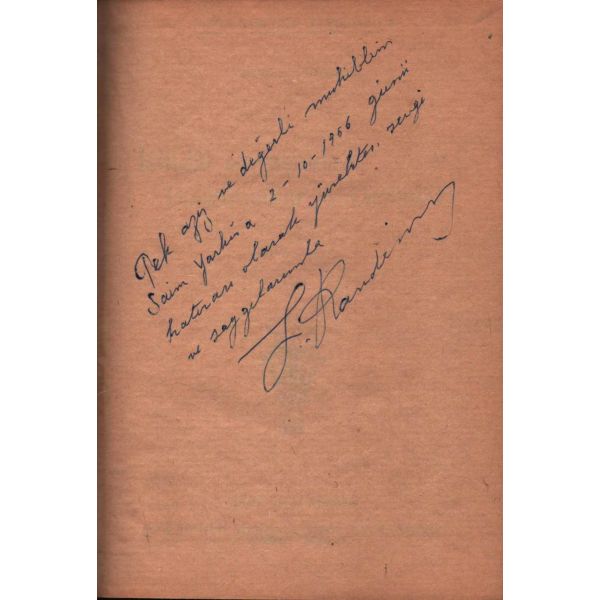 Pek aziz ve değerli muhiblim
Saim Yarkın'a 2-10-1966 günü
hatırası olarak yürekten, sevgi
ve saygılarımla